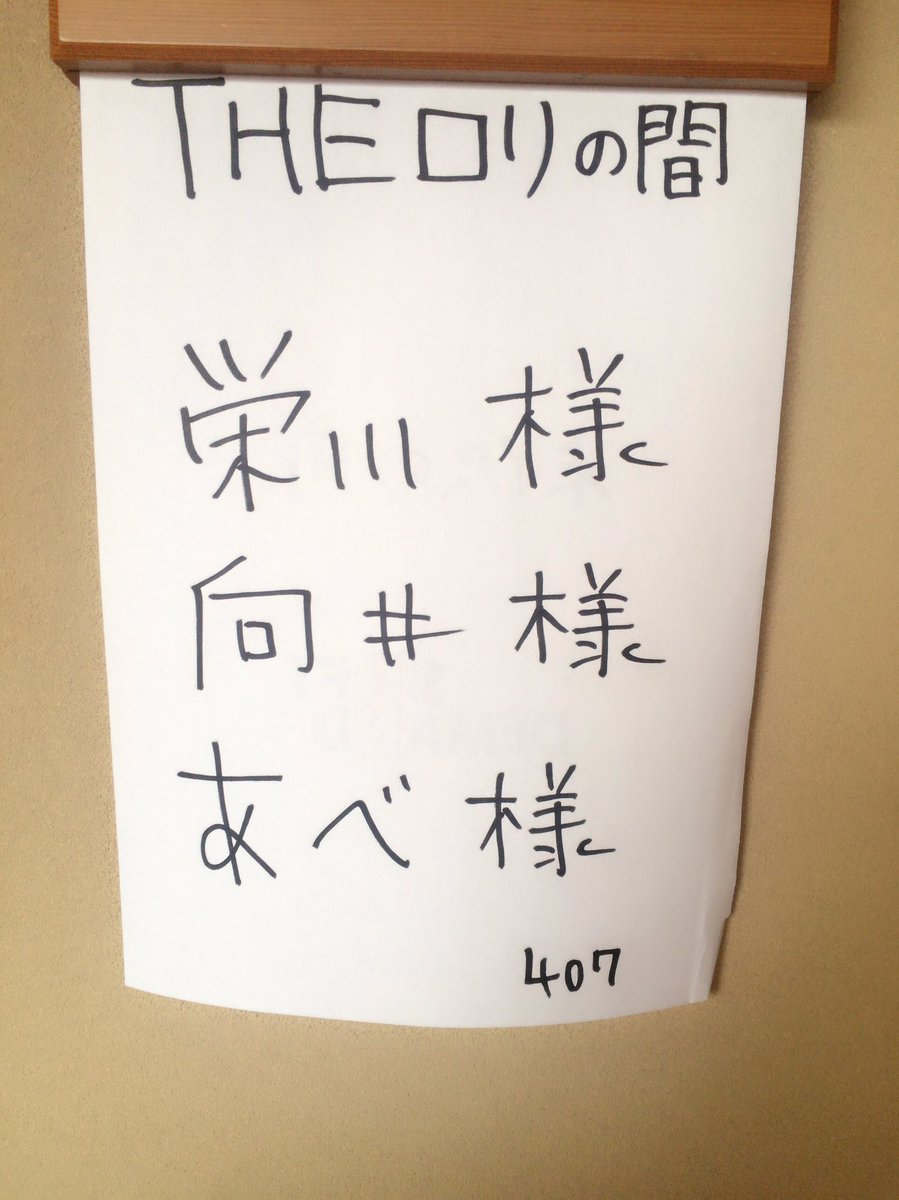 THEロリの間
栄川 様
向井 様
あべ 様
407